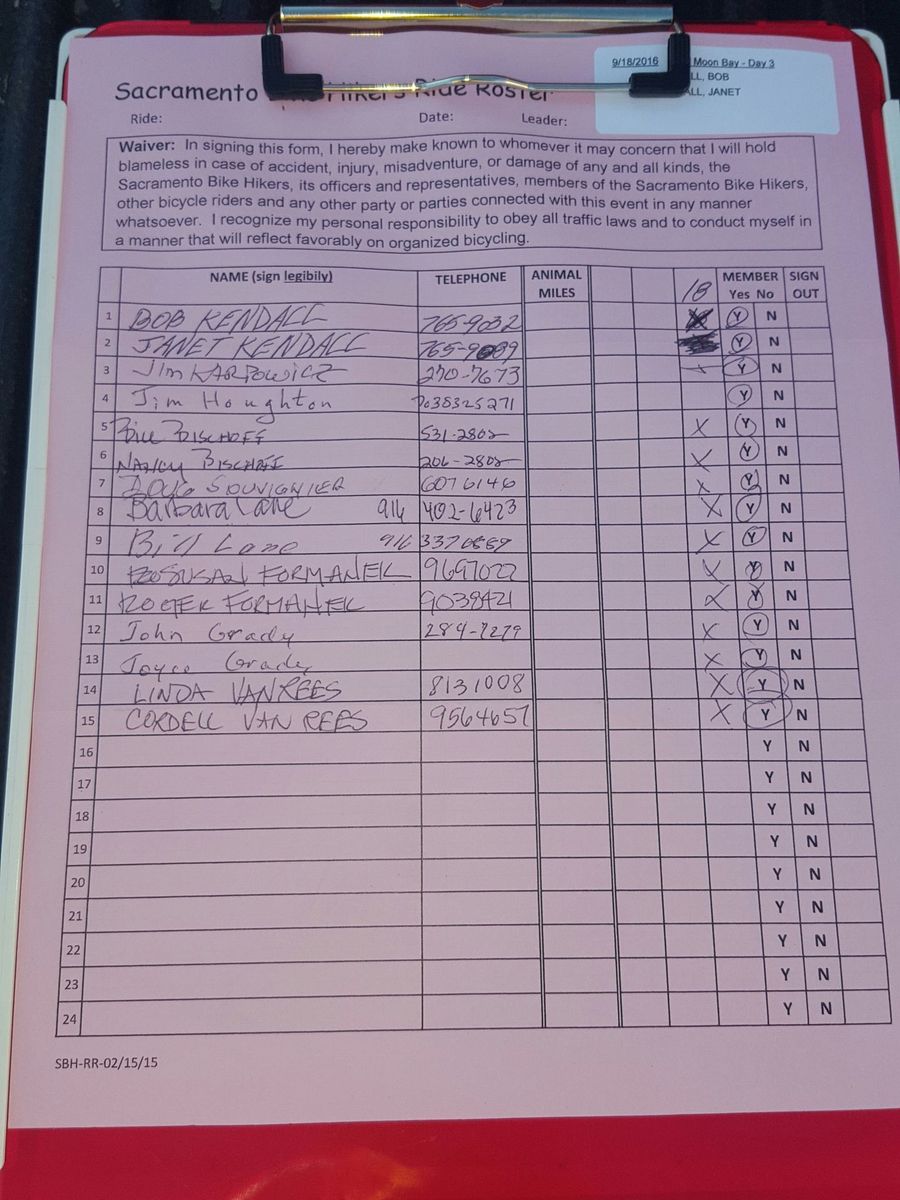 9/18/2016 Moon Bay - Day 3
LL, BOB
ALL, JANET
Sacramento Hikers Ride Roster
Ride: Date: Leader:
Waiver: In signing this form, I hereby make known to whomever it may concern that I will hold
blameless in case of accident, injury, misadventure, or damage of any and all kinds, the
Sacramento Bike Hikers, its officers and representatives, members of the Sacramento Bike Hikers,
other bicycle riders and any other party or parties connected with this event in any manner
whatsoever. I recognize my personal responsibility to obey all traffic laws and to conduct myself in
a manner that will reflect favorably on organized bicycling.
NAME (sign legibily) TELEPHONE ANIMAL MILES 18 MEMBER Yes No SIGN OUT
1 BOB KENDALL 765-9032 Y N
2 JANET KENDALL 765-9089 Y N
3 Jim KARPOWICZ 270-7673 Y N
4 Jim Houghton 7038325271 Y N
5 Bill BISCHOFF 531-2802 X Y N
6 NANCY BISCHOFF 206-2802 X Y N
7 DOUG SOUVIGNIER 6076146 X Y N
8 Barbara Lane 916 402-6423 X Y N
9 Bill Lane 916 337 X Y N
10 SUSAN FORMANEK 9697022 X Y N
11 ROGER FORMANEK 9038421 X Y N
12 John Grady 284-7279 X Y N
13 Joyce Grady X Y N
14 LINDA VANREES 8131008 X Y N
15 CORDELL VAN REES 9564657 X Y N
16 Y N
17 Y N
18 Y N
19 Y N
20 Y N
21 Y N
22 Y N
23 Y N
24 Y N
SBH-RR-02/15/15